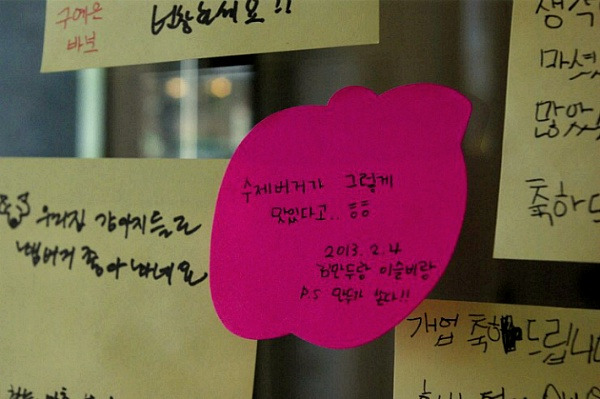 구예은
바보
번창하세요!!
생각
마셨
많았
축하드
수제버거가 그렇게
맛있다고.. ㅎㅎ
2013. 2. 4
이슬비랑
P.S 만두가 쏜다!!
우리집 강아지들도
햄버거 좋아하네요
개업 축하드립니다